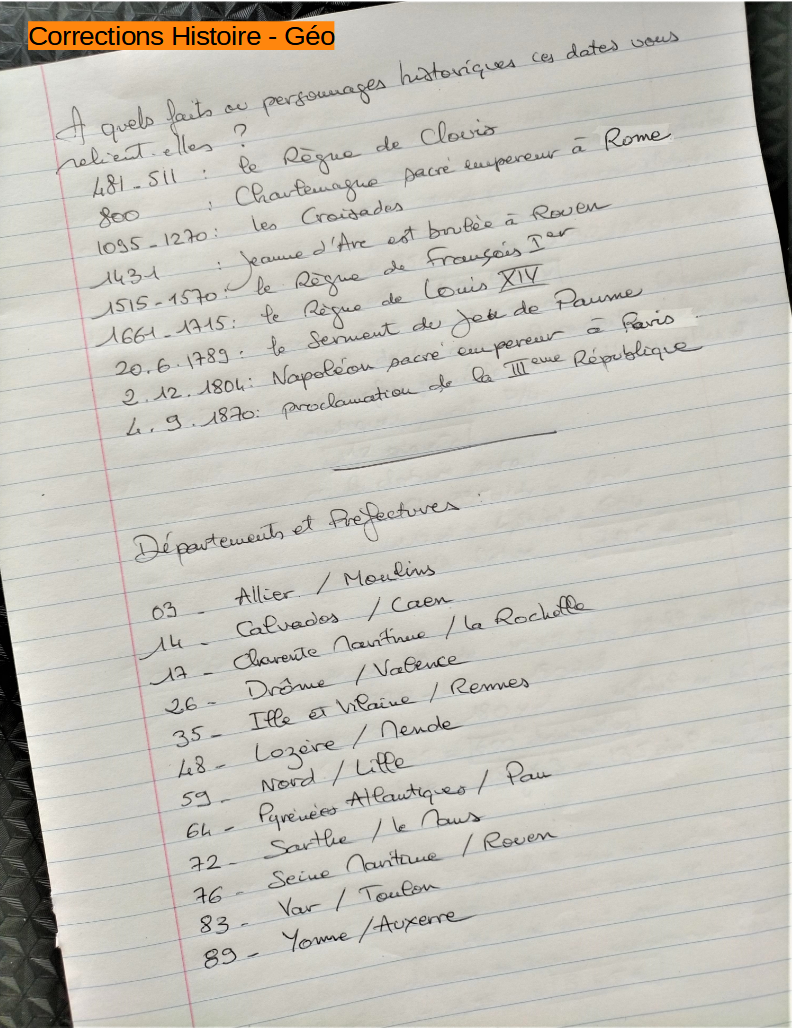 Corrections Histoire - Géo
A quels faits ou personnages historiques ces dates vous
relient-elles ?
481-511 : le Règne de Clovis
800 : Charlemagne sacré empereur à Rome
1095-1270: les Croisades
1431 : Jeanne d'Arc est brulée à Rouen
1515-1570: le Règne de François Ier
1661-1715: le Règne de Louis XIV
20.6.1789: le Serment du Jeu de Paume
2.12.1804: Napoléon sacré empereur à Paris
4.9.1870: proclamation de la IIIeme République
Départements et Préfectures.
03 - Allier / Moulins
14 - Calvados / Caen
17 - Charente Maritime / la Rochelle
26 - Drôme / Valence
35 - Ille et Vilaine / Rennes
48 - Lozère / Mende
59 - Nord / Lille
64 - Pyrénées Atlantiques / Pau
72 - Sarthe / le Mans
76 - Seine Maritime / Rouen
83 - Var / Toulon
89 - Yonne / Auxerre